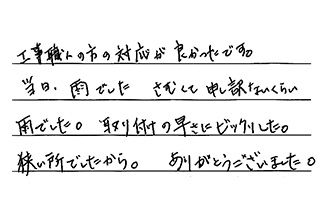 工事職人の方の対応が良かったです。
当日、雨でした さむくて申し訳ないくらい
雨でした。 取り付けの早さにビックリした。
狭い所でしたから。 ありがとうございました。